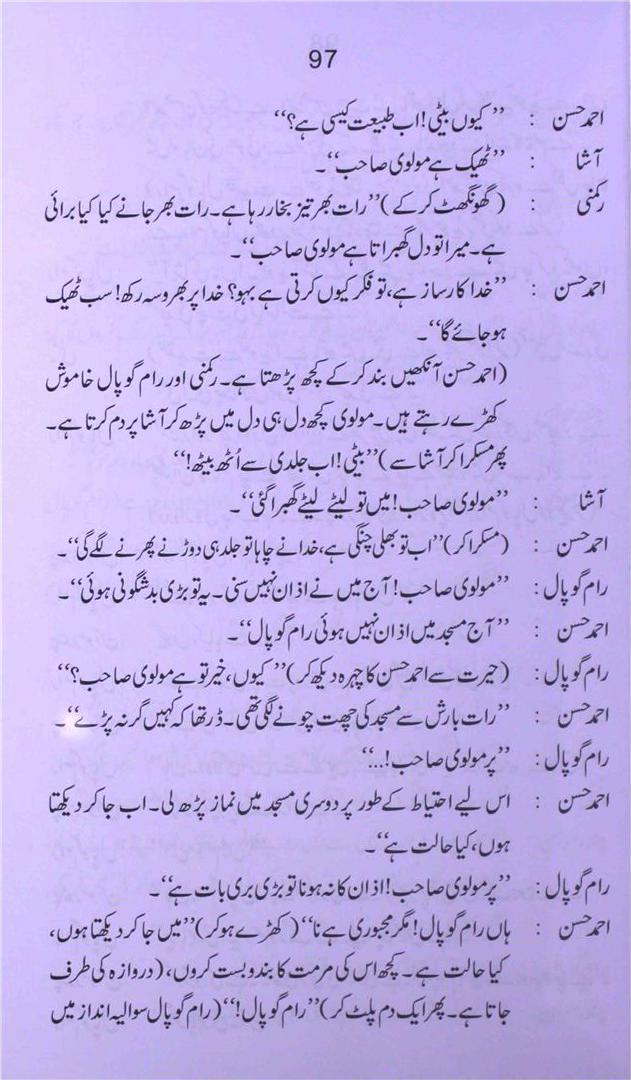 97
احمد حسن : ’’کیوں بیٹی! اب طبیعت کیسی ہے؟‘‘
آشا : ’’ٹھیک ہے مولوی صاحب‘‘۔
رکمنی : (گھونگھٹ کر کے)’’رات بھر تیز بخار رہا ہے۔ رات بھر جانے کیا کیا برائی
ہے۔ میرا تو دل گھبراتا ہے مولوی صاحب‘‘۔
احمد حسن : ’’خدا کارساز ہے، تو فکر کیوں کرتی ہے بہو؟ خدا پر بھروسہ رکھ! سب ٹھیک
ہو جائے گا‘‘۔
(احمد حسن آنکھیں بند کر کے کچھ پڑھتا ہے۔ رکمنی اور رام گوپال خاموش
کھڑے رہتے ہیں۔ مولوی کچھ دل ہی دل میں پڑھ کر آشا پر دم کرتا ہے۔
پھر مسکرا کر آشا سے)’’بیٹی! اب جلدی سے اُٹھ بیٹھ!‘‘
آشا : ’’مولوی صاحب! میں تو لیٹے لیٹے گھبرا گئی‘‘۔
احمد حسن : (مسکرا کر)’’اب تو بھلی چنگی ہے، خدا نے چاہا تو جلد ہی دوڑنے پھرنے لگے گی‘‘۔
رام گوپال : ’’مولوی صاحب! آج میں نے اذان نہیں سنی۔ یہ تو بڑی بدشگونی ہوئی‘‘۔
احمد حسن : ’’آج مسجد میں اذان نہیں ہوئی رام گوپال‘‘۔
رام گوپال : (حیرت سے احمد حسن کا چہرہ دیکھ کر)’’کیوں، خیر تو ہے مولوی صاحب؟‘‘
احمد حسن : ’’رات بارش سے مسجد کی چھت چونے لگی تھی۔ ڈر تھا کہ کہیں گر نہ پڑے‘‘۔
رام گوپال : ’’پر مولوی صاحب!...‘‘
احمد حسن : اس لیے احتیاط کے طور پر دوسری مسجد میں نماز پڑھ لی۔ اب جا کر دیکھتا
ہوں، کیا حالت ہے‘‘۔
رام گوپال : ’’پر مولوی صاحب! اذان کا نہ ہونا تو بڑی بری بات ہے‘‘۔
احمد حسن : ہاں رام گوپال! مگر مجبوری ہے نا‘‘(کھڑے ہو کر)’’میں جا کر دیکھتا ہوں،
کیا حالت ہے۔ کچھ اس کی مرمت کا بندوبست کروں، (دروازہ کی طرف
جاتا ہے۔ پھر ایک دم پلٹ کر)’’رام گوپال!‘‘(رام گوپال سوالیہ انداز میں